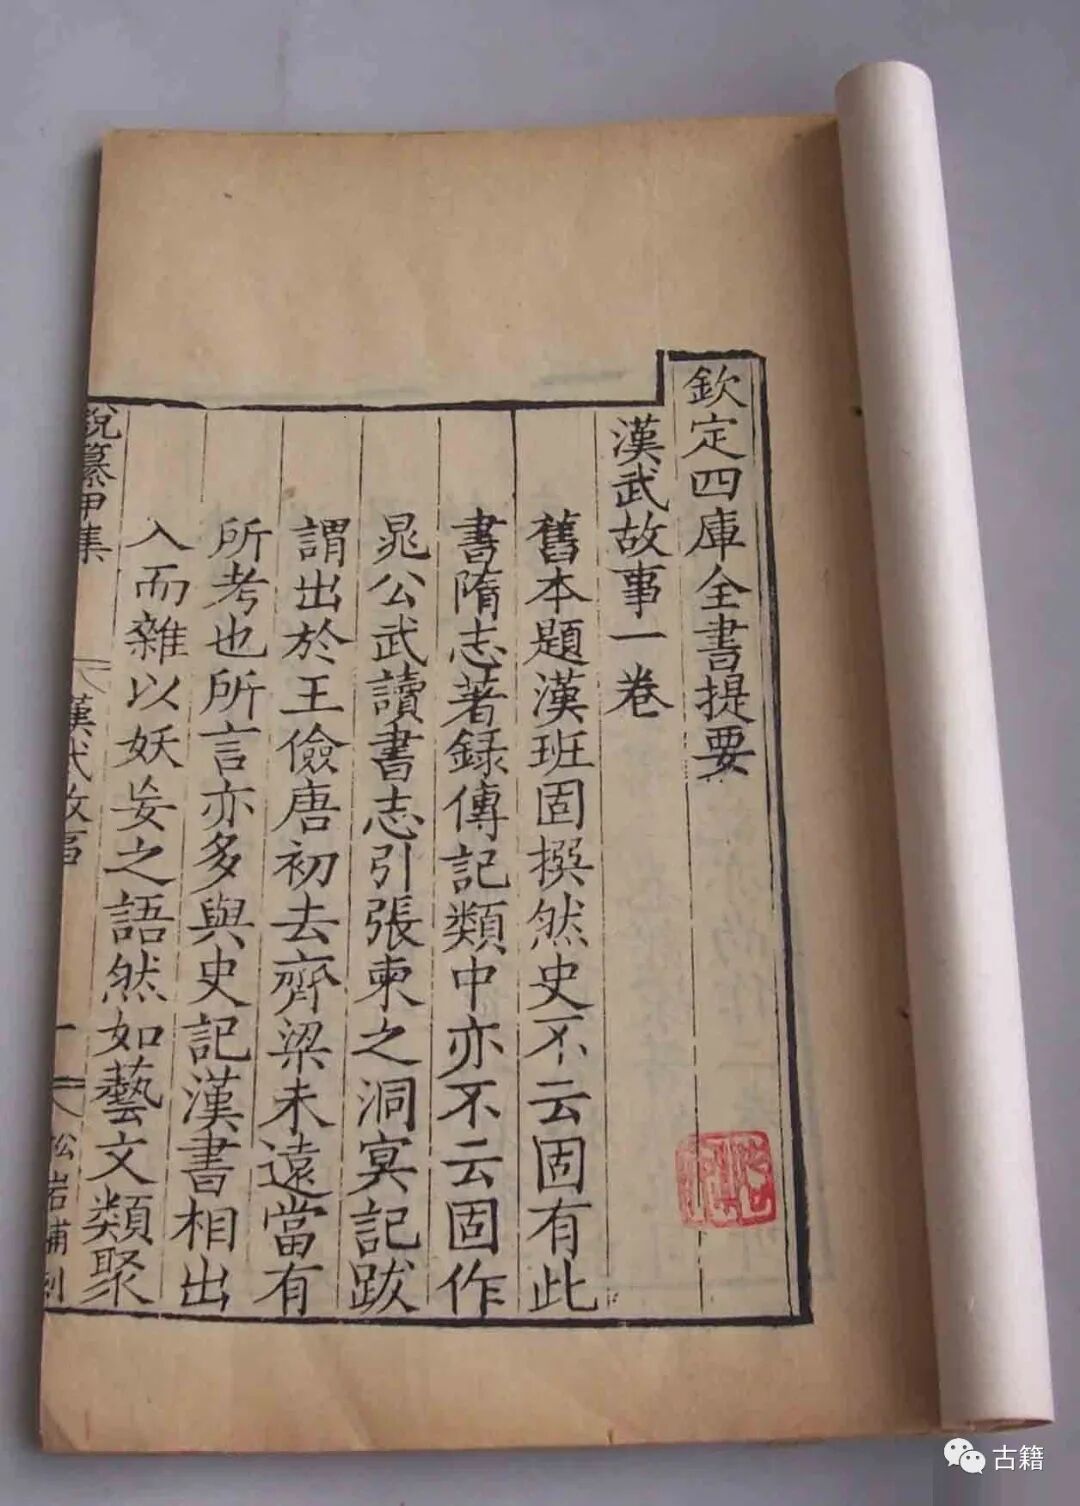 欽定四庫全書提要
漢武故事一卷
舊本題漢班固撰然史不云固有此
書隋志著錄傳記類中亦不云固作
晁公武讀書志引張柬之洞冥記跋
謂出於王儉唐初去齊梁未遠當有
所考也所言亦多與史記漢書相出
入而雜以妖妄之語然如藝文類聚
說纂甲集
漢武故事
一
松岩補刻
古籍